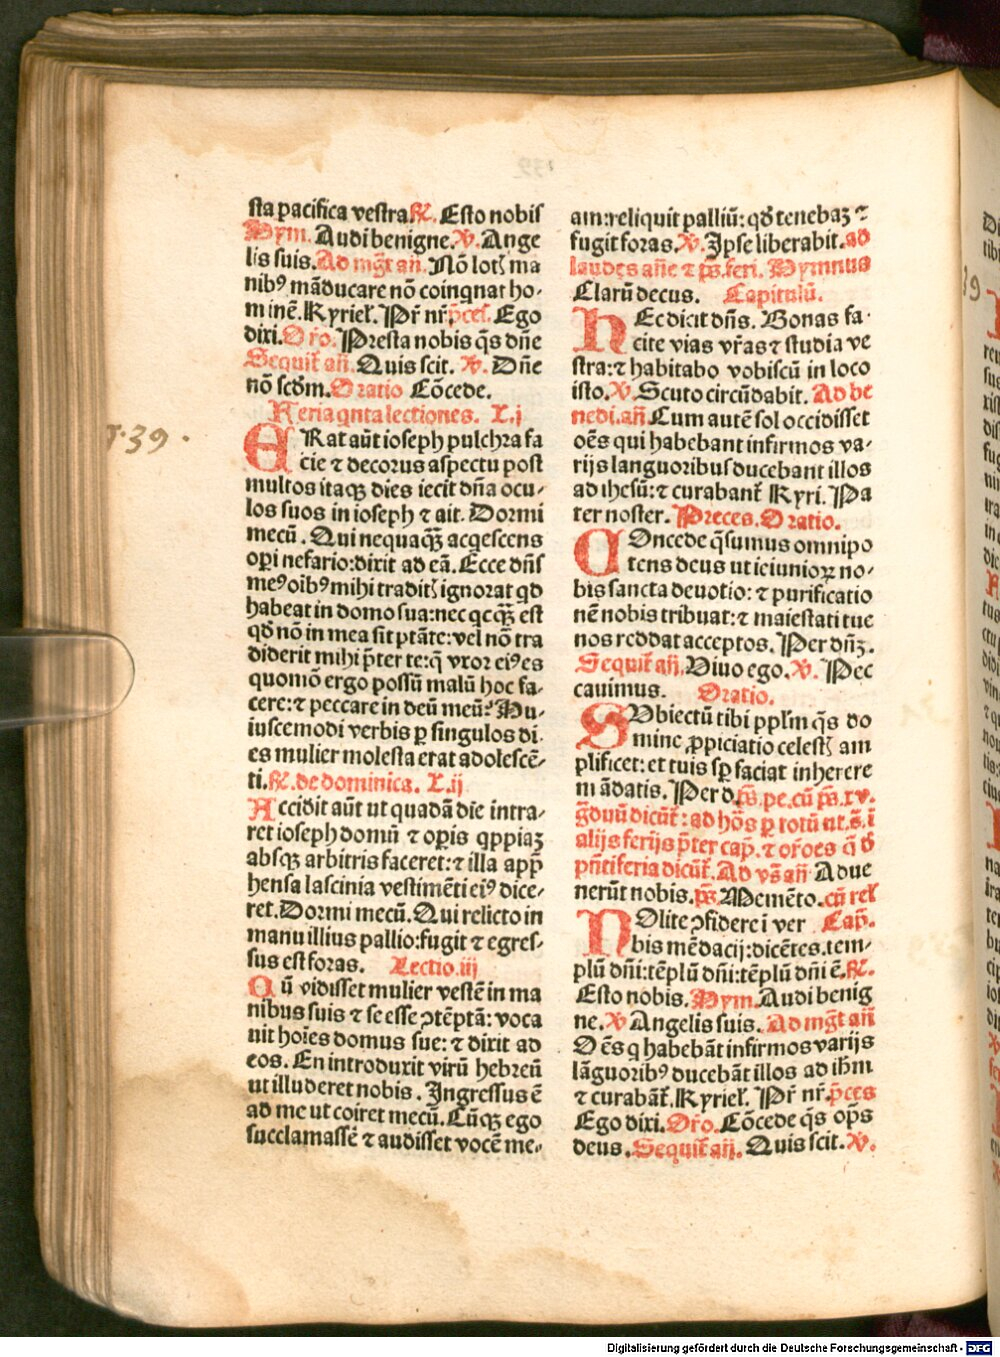 sta pacifica vestra. ℟. Esto nobis
Hym. Audi benigne. ℣. Ange
lis suis. Ad mg̃t añ. Nõ lotꝭ ma
nibꝰ mãducare nõ coinqnat ho-
minẽ. Kyriel̃. Pr̃ nr̃. p̃ces̃. Ego
dixi. Or̃o. Presta nobis q̃s dñe
Sequit̃ añ. Quis scit. ℣. Dñe
nõ scdm. Oratio Cõcede.
Feria qnta lectiones. L.j
ERat aũt ioseph pulchra fa
cie ⁊ decorus aspectu post
multos itaqꝫ dies iecit dña ocu-
los suos in ioseph ⁊ ait. Dormi
mecũ. Qui nequaqꝫ̃ acqescens
op̃i nefario: dixit ad eã. Ecce dñs
meꝰ oibꝰ mihi traditꝭ ignorat qd
habeat in domo sua: nec qcqꝫ̃ est
qđ nõ in mea sit ptãte: vel nõ tra
diderit mihi p̃ter te: q̃ vxor eiꝰ es
quomõ ergo possũ malũ hoc fa-
cere: ⁊ peccare in deũ meũ? Hu-
iuscemodi verbis ꝑ singulos di-
es mulier molesta erat adolescẽ-
ti. ℟. de dominica. L.ij
Accidit aũt ut quadã die intra-
ret ioseph domũ ⁊ op̃is qppiaꝫ
absqꝫ arbitris faceret: ⁊ illa app̃
hensa lascinia vestimẽti eiꝰ dice-
ret. Dormi mecũ. Qui relicto in
manu illius pallio: fugit ⁊ egres-
sus est foras. Lectio.iij
Qũ vidisset mulier vestẽ in ma
nibus suis ⁊ se esse ꝯtẽptã: voca
uit hoĩes domus sue: ⁊ dixit ad
eos. En introduxit virũ hebreũ
ut illuderet nobis. Ingressus ẽ
ad me ut coiret mecũ. Cũqꝫ ego
succlamassẽ ⁊ audisset vocẽ me-
T. 39.
am: reliquit palliũ: qđ tenebaꝫ ⁊
fugit foras. ℣. Ipse liberabit. ad
laudes añe ⁊ p̃s. feri. Hymnus
Clarũ decus. Capitulũ.
HEc dicit dñs. Bonas fa-
cite vias vr̃as ⁊ studia ve
stra: ⁊ habitabo vobiscũ in loco
isto. ℣. Scuto circũdabit. Ad be
nedi. añ. Cum autẽ sol occidisset
oẽs qui habebant infirmos va-
rijs languoribus ducebant illos
ad ihesũ: ⁊ curabant̃ Kyri. Pa
ter noster. Preces. Oratio.
COncede q̃sumus omnipo
tens deus ut ieiunioꝝ no-
bis sancta deuotio: ⁊ purificatio
nẽ nobis tribuat: ⁊ maiestati tue
nos reddat acceptos. Per dñꝫ.
Sequit̃ añ. Viuo ego. ℣. Pec
cauimus. Oratio.
SUbiectũ tibi pplm̃ q̃s do
mine ꝓpiciatio celestꝭ am
plificet: et tuis sꝑ faciat inherere
mãdatis. Per d. p̃s. pe. cũ p̃s. xv.
g̃duũ dicũt̃: ad hõs ꝑ totũ ut. s̃. ĩ
alijs ferijs p̃ter cap̃. ⁊ or̃oes q̃ đ
p̃nti feria dicũt̃. Ad vs̃ añ Adue
nerũt nobis. p̃s. Memẽto. cũ rel̃
NOlite ꝯfidere ĩ ver Cap̃.
bis mẽdacij: dicẽtes. tem-
plũ dñi: tẽplũ dñi: tẽplũ dñi ẽ. ℟.
Esto nobis. Hym. Audi benig
ne. ℣ Angelis suis. Ad mg̃t añ
Oẽs q habebãt infirmos varijs
lãguoribꝰ ducebãt illos ad ihm̃
⁊ curabãt̃. Kyriel̃. Pr̃ nr̃. p̃ces
Ego dixi. Or̃o. Cõcede q̃s op̃s
deus. Sequit̃ añ. Quis scit. ℣.
Digitalisierung gefördert durch die Deutsche Forschungsgemeinschaft - DFG